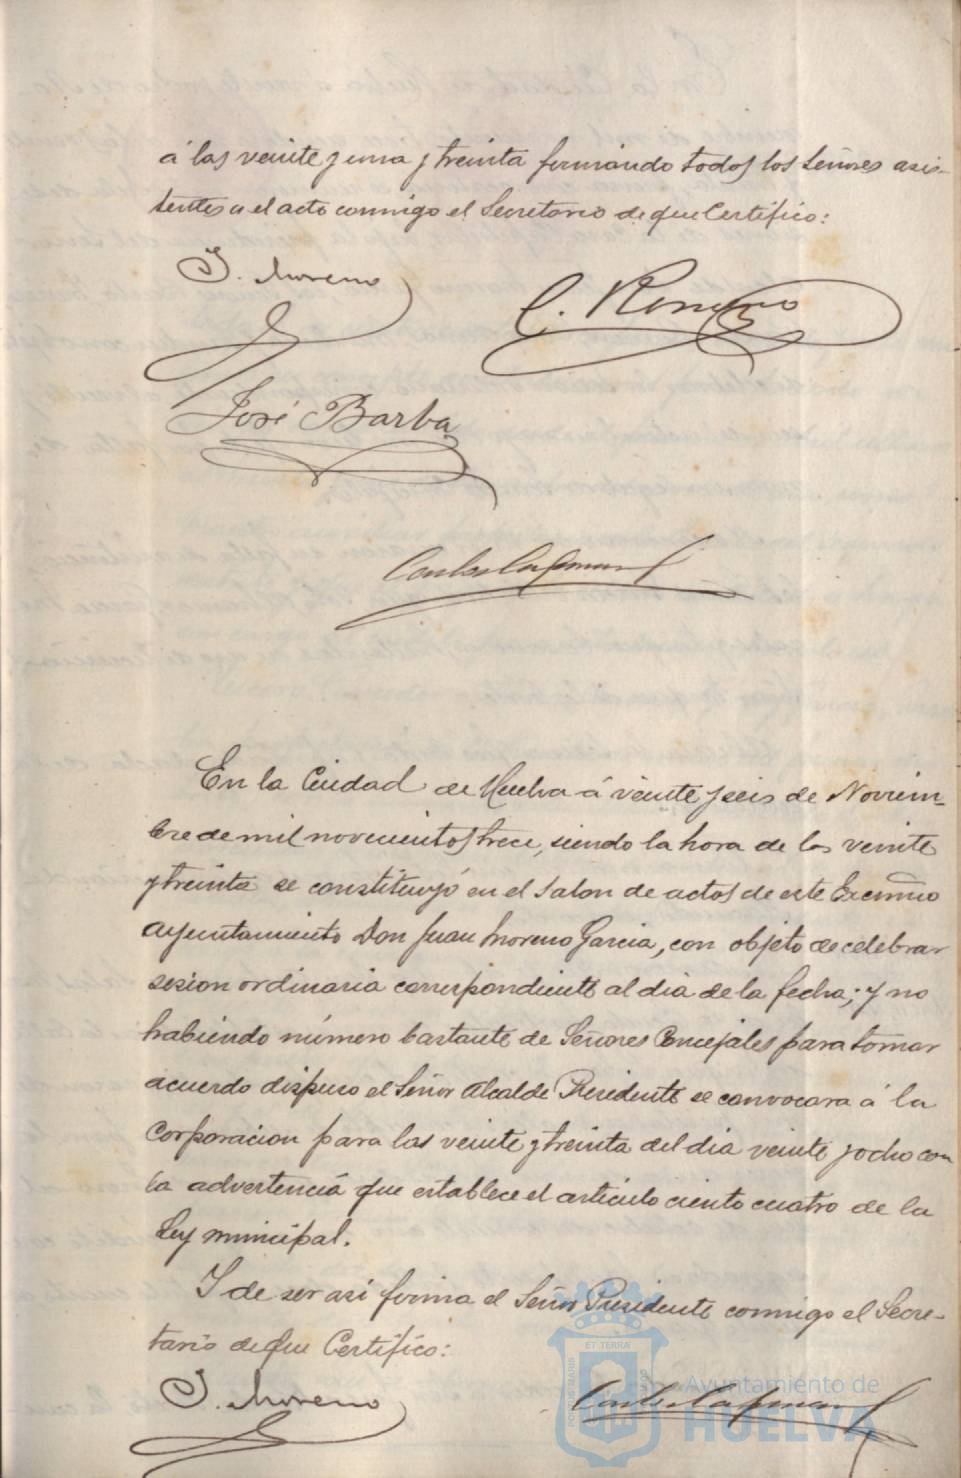 á las veinte y una y treinta firmando todos los Señores asis-
tentes a el acto conmigo el Secretario de que Certifico:
J. Moreno
C. Romero
José Barba
En la Ciudad de Huelva á veinte y seis de Noviem-
bre de mil novecientos trece, siendo la hora de las veinte
y treinta se constituyó en el Salon de actos de este Excmo
Ayuntamiento Don Juan Moreno Garcia, con objeto de celebrar
sesion ordinaria correspondiente al dia de la fecha; y no
habiendo número bastante de Señores Concejales para tomar
acuerdo dispuso el Señor Alcalde Presidente se convocara á la
Corporacion para las veinte y treinta del dia veinte y ocho con
la advertencia que establece el articulo ciento cuatro de la
Ley municipal.
Y de ser asi firma el Señor Presidente conmigo el Secre-
tario de que Certifico:
J. Moreno
ET TERRA
Ayuntamiento de
HUELVA